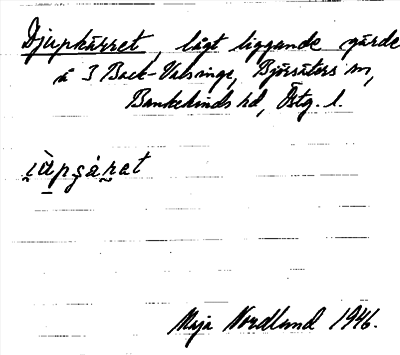 Djupkärret, lågt liggande gärde
å 3 Back-Valsinge, Björsäters sn,
Bankekinds hd, Östg. l.
Maja Nordlund 1946.